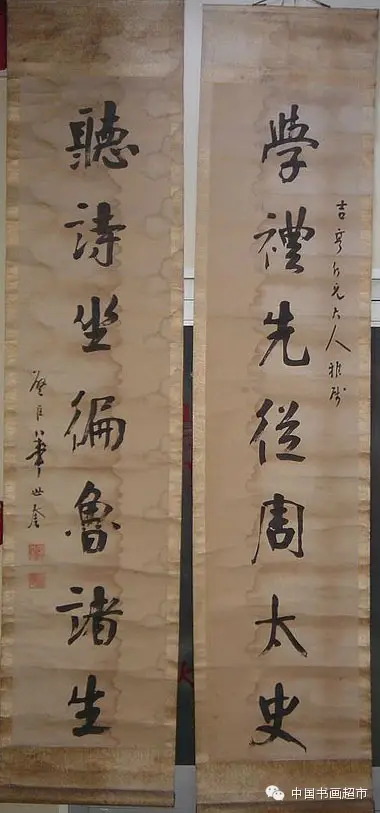 學禮先從周太史
吉亨仁兄大人雅属
聽詩坐徧魯諸生
華世奎
中国书画超市